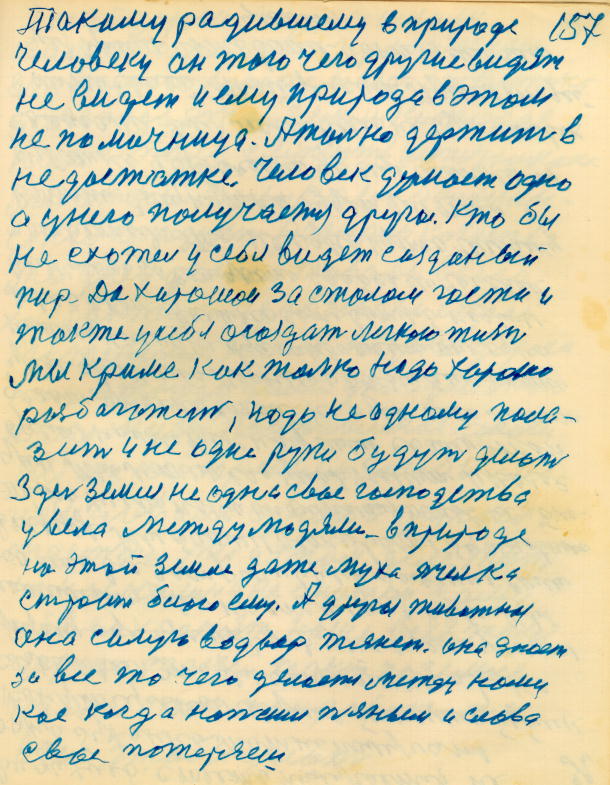 Такому радившему в природе 157
Человеку он того чего другие видят
не видет и ему природа в этом
не помочница. А толко держит в
недостатке. Человек думает одно
а у него получается другое. Кто бы
не схотел у себя видет созданый
пир Да хорошой за столом гости и
также у себя создат легкою жизн
Мы Кроме как толко надо харошо
разбагатет, надо не одному пола-
зит и не одне руки будут делат
Здес Земля не одна свое господства
увела Между людями_ в природе
на этой Земле даже муха пчелка
строит благо ему. А другое животное
она самую в одвор тянет. она знает
за все то чего делает между нами
кое когда напеши пяным и слова
свое потеряеш